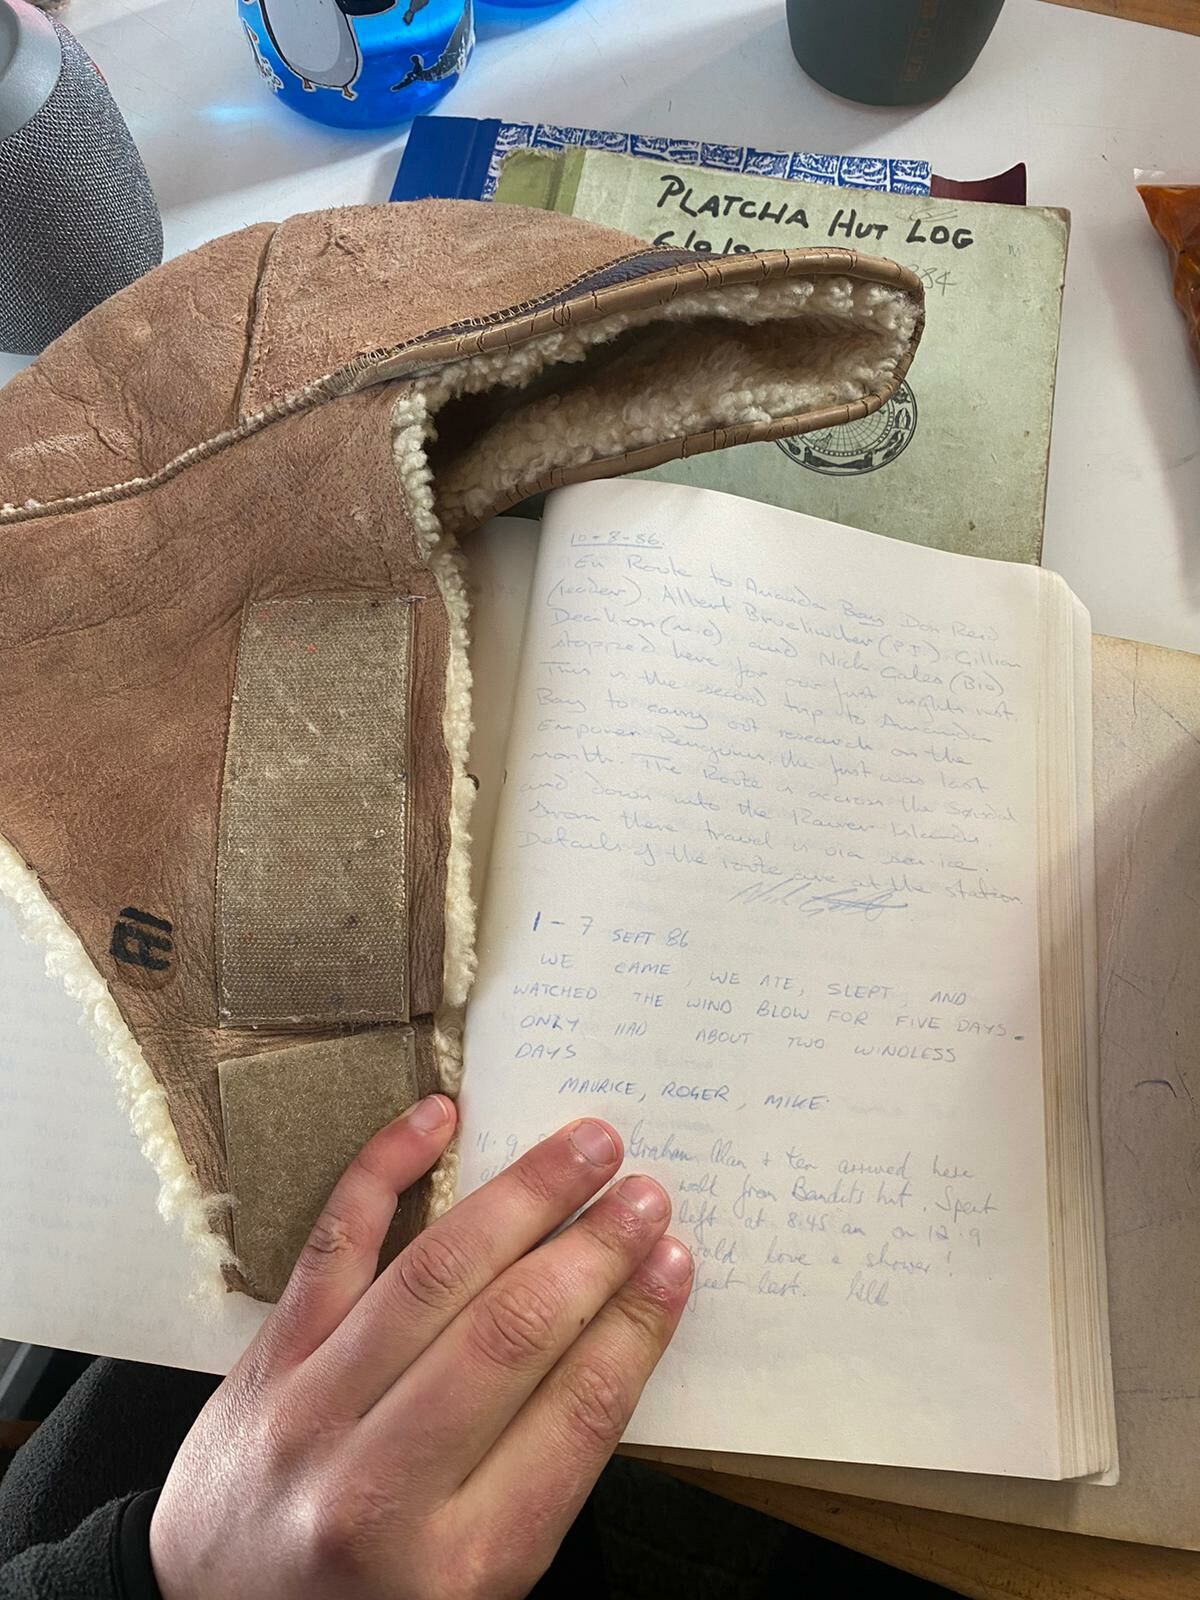 SEA TO
PLATCHA HUT LOG
6/9/
84
A1
10-8-86.
En Route to Amanda Bay Don Reid
(leader), Albert (P.I.) Gillian
Deakon (m.o) and Nick Gales (Bio)
stopped here for our first nights rest.
This is the second trip to Amanda
Bay to carry out research on the
Emperor Penguins, the first was last
month. The Route is accross the Sørsdal
and down into the Rauer Islands
from there travel is via sea-ice.
Details of the route are at the station
1-7 SEPT 86
WE CAME, WE ATE, SLEPT, AND
WATCHED THE WIND BLOW FOR FIVE DAYS.
ONLY HAD ABOUT TWO WINDLESS
DAYS
MAURICE, ROGER, MIKE.
11.9. Graham Alan + Ken arrived here
walk from Bandits hut. Spent
left at 8.45 am on 12.9
would love a shower!
feet last.